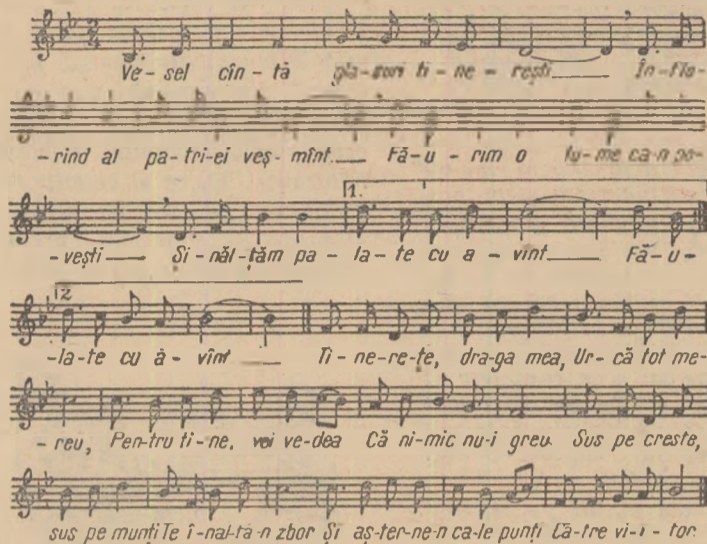 2/4
Ve-sel cîn-tă gla-suri ti-ne-rești___ În-flo-
-rind al pa-tri-ei veș-mînt___ Fă-u-rim o lu-me ca-n po-
1.
-vești___ Și-năl-țăm pa-la-te cu a-vînt___ Fă-u-
2
-la-te cu a-vînt___ Ti-ne-re-te, dra-ga mea, Ur-că tot me-
-reu, Pen-tru ti-ne, vei ve-dea Că ni-mic nu-i greu. Sus pe creste,
sus pe munți Te î-nal-ță-n zbor Și aș-ter-ne-n ca-le punți Că-tre vi-i-tor.